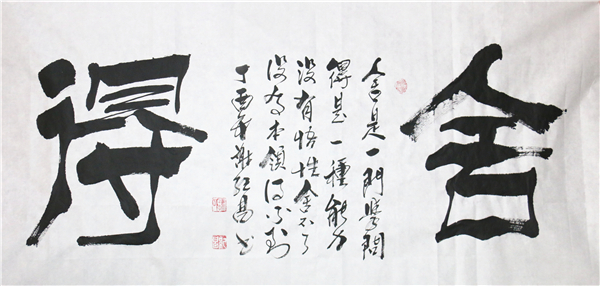 舍
舍是一門學問
得是一種能力
没有悟性舍不了
没有本領得不到
丁酉年謝红昌书
得